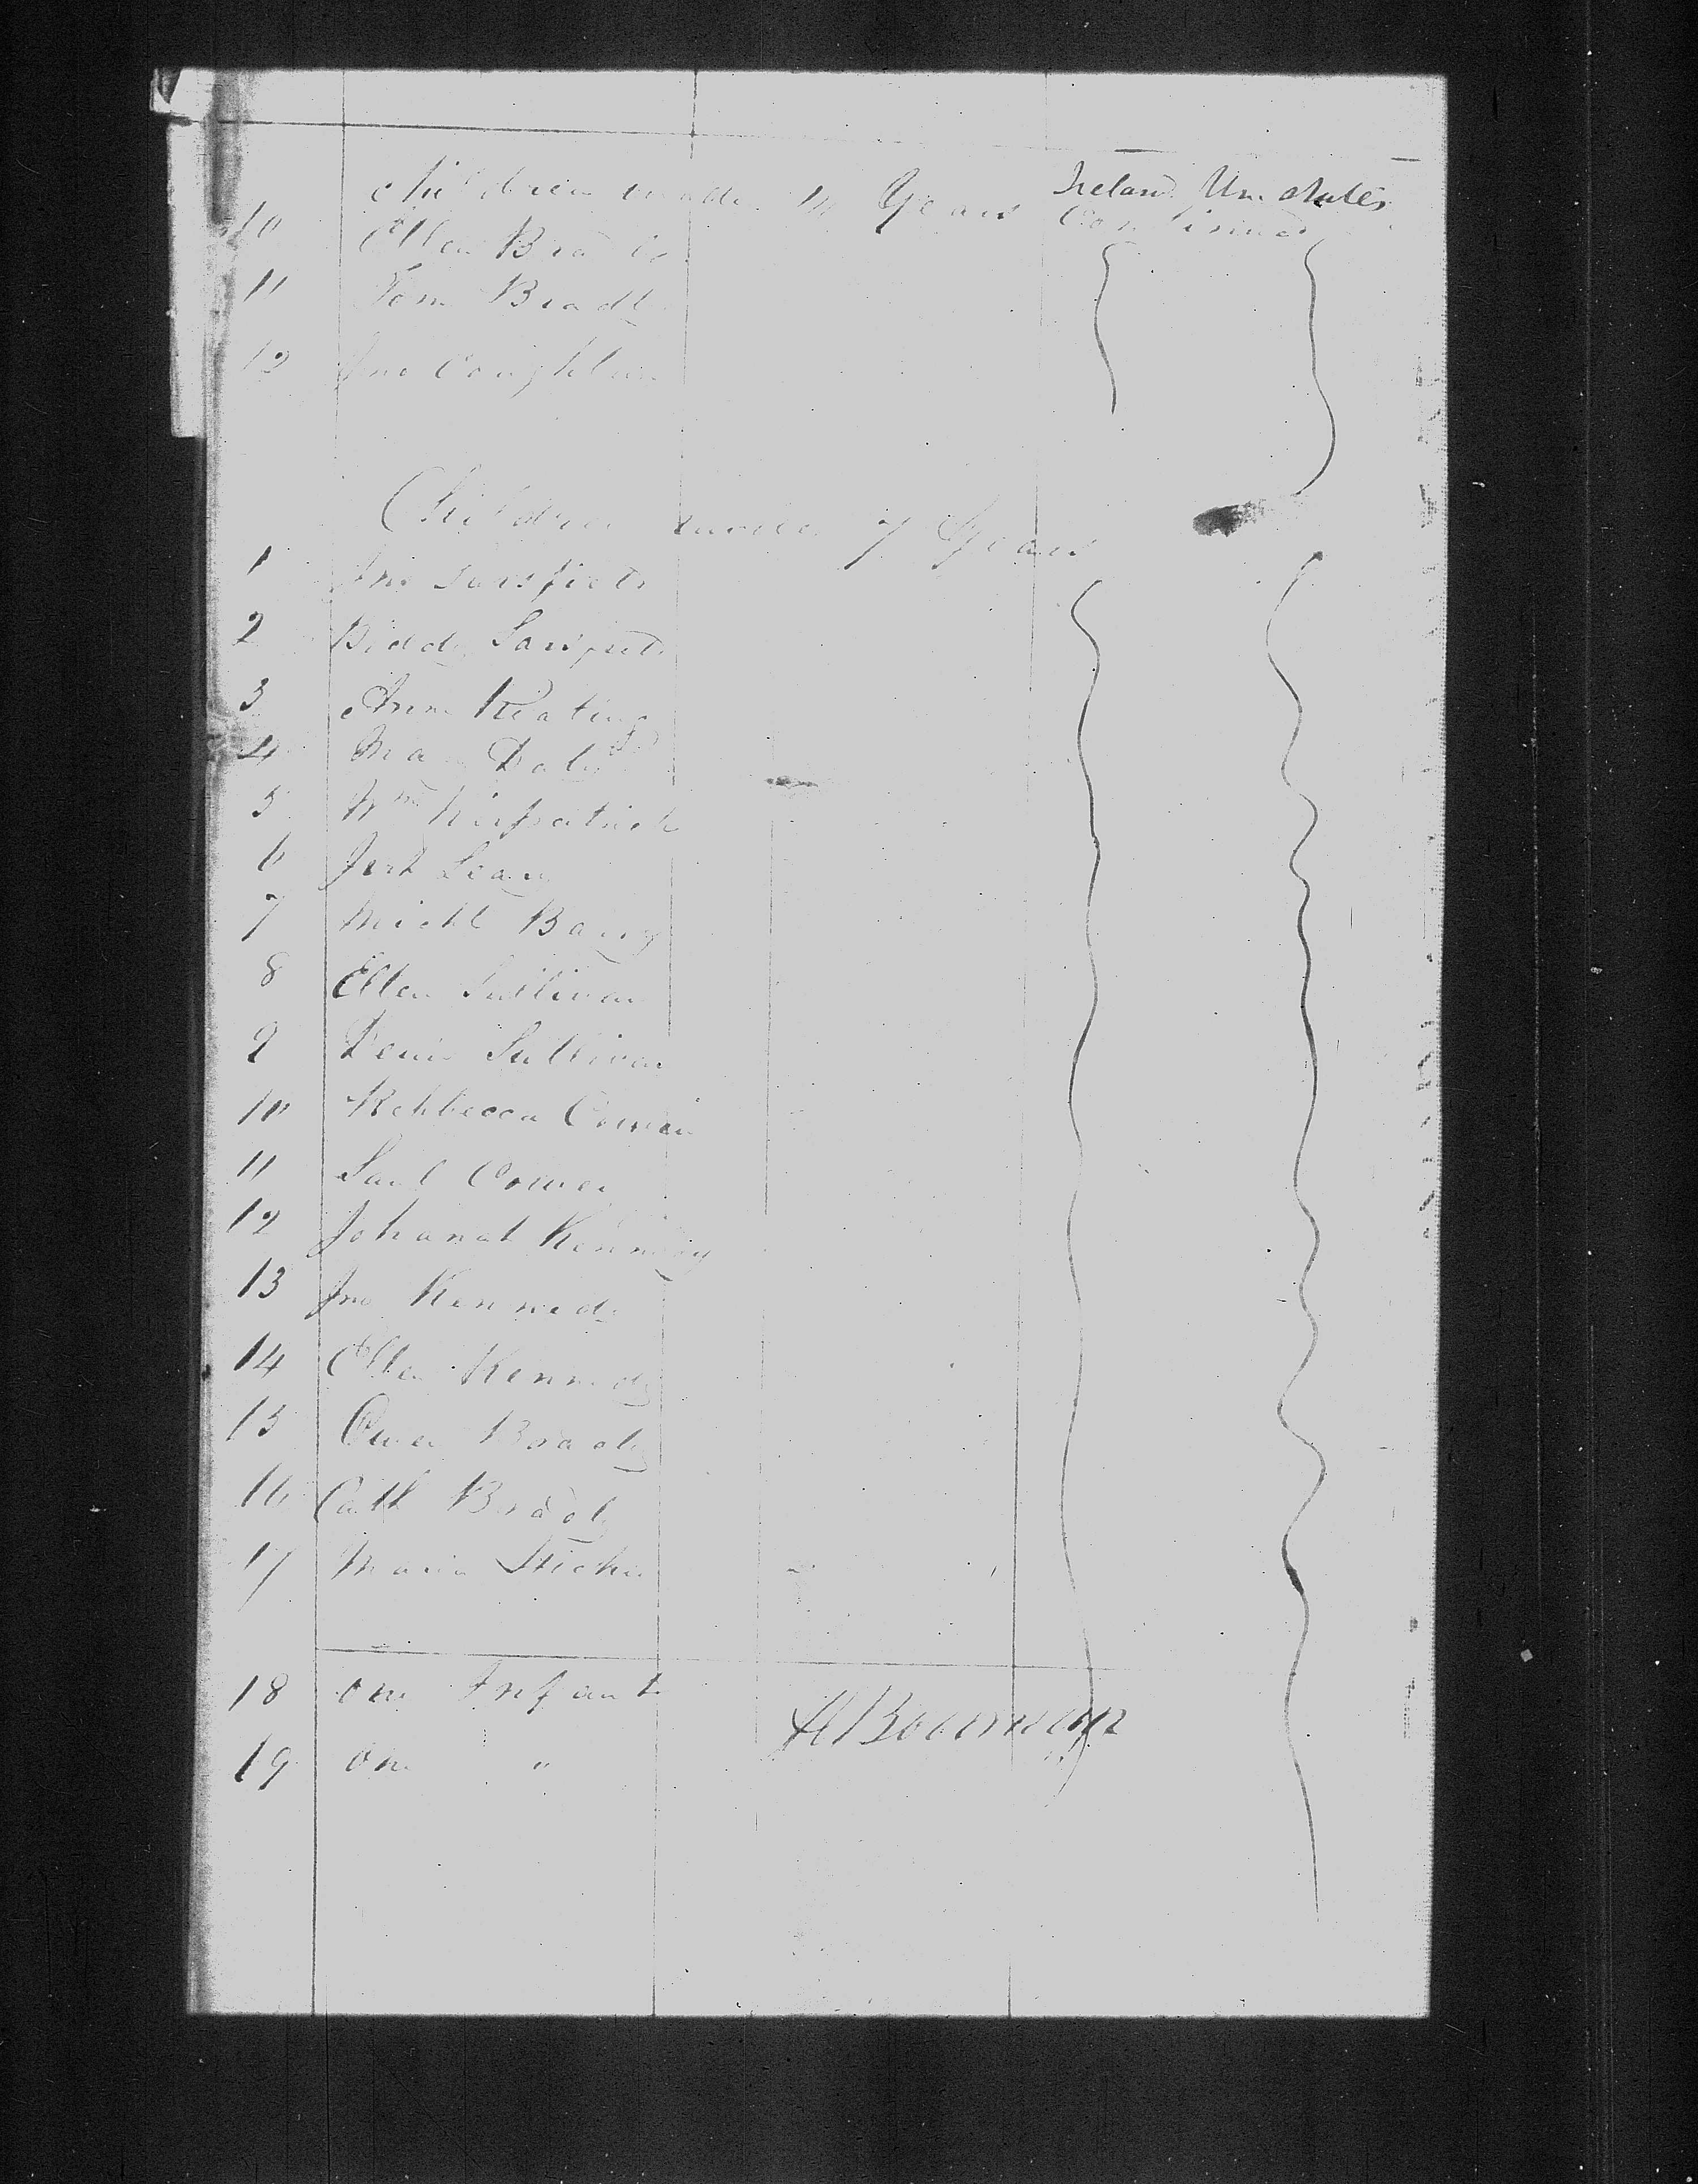 Children under 14 Years Continued Ireland Un. States
10 Ellen Brady
11 Tom Brady
12 Jno Coughlan
Children under 7 Years
1 Jno Sarsfield
2 Biddy Sarsfield
3 Ann Keating
4 Mary Daly
5 Wm Kirpatrick
6 Leary
7 Michl Barry
8 Ellen Sullivan
9 Denis Sullivan
10 Rehbecca Cowen
11 Saml Cowen
12 Johanah Kennedy
13 Jno Kennedy
14 Ellen Kennedy
15 Owen Brady
16 Cath Brady
17 Maria
18 one Infant
19 one "
Bowman